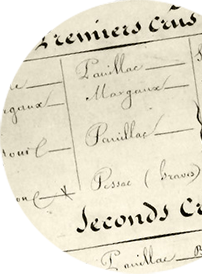 Premiers Crus
Pauillac
rgaux Margaux
tour Pauillac
on Pessac (Graves)
Seconds Cr
Pauillac